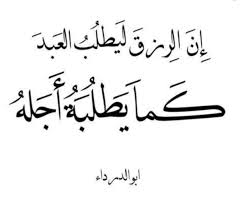 إِنَ الِرزقَ لَيَطلُبُ العَبدَ
كَمَا يَطلُبَةُ أَجَلهُ
ابو الدرداء